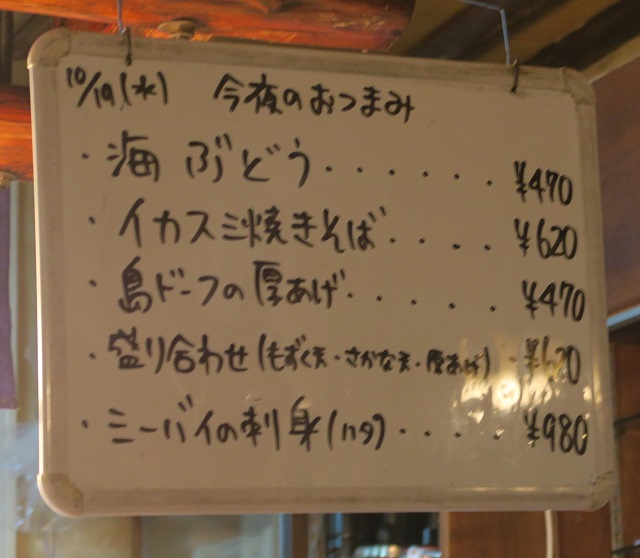 10/19(水) 今夜のおつまみ
・海ぶどう・・・・・・¥470
・イカスミ焼きそば・・・・¥620
・島ドーフの厚あげ・・・・・¥470
・盛り合わせ(もずく天・さかな天・厚あげ)・¥620
・ミーバイの刺身(ハタ)・・・・¥980